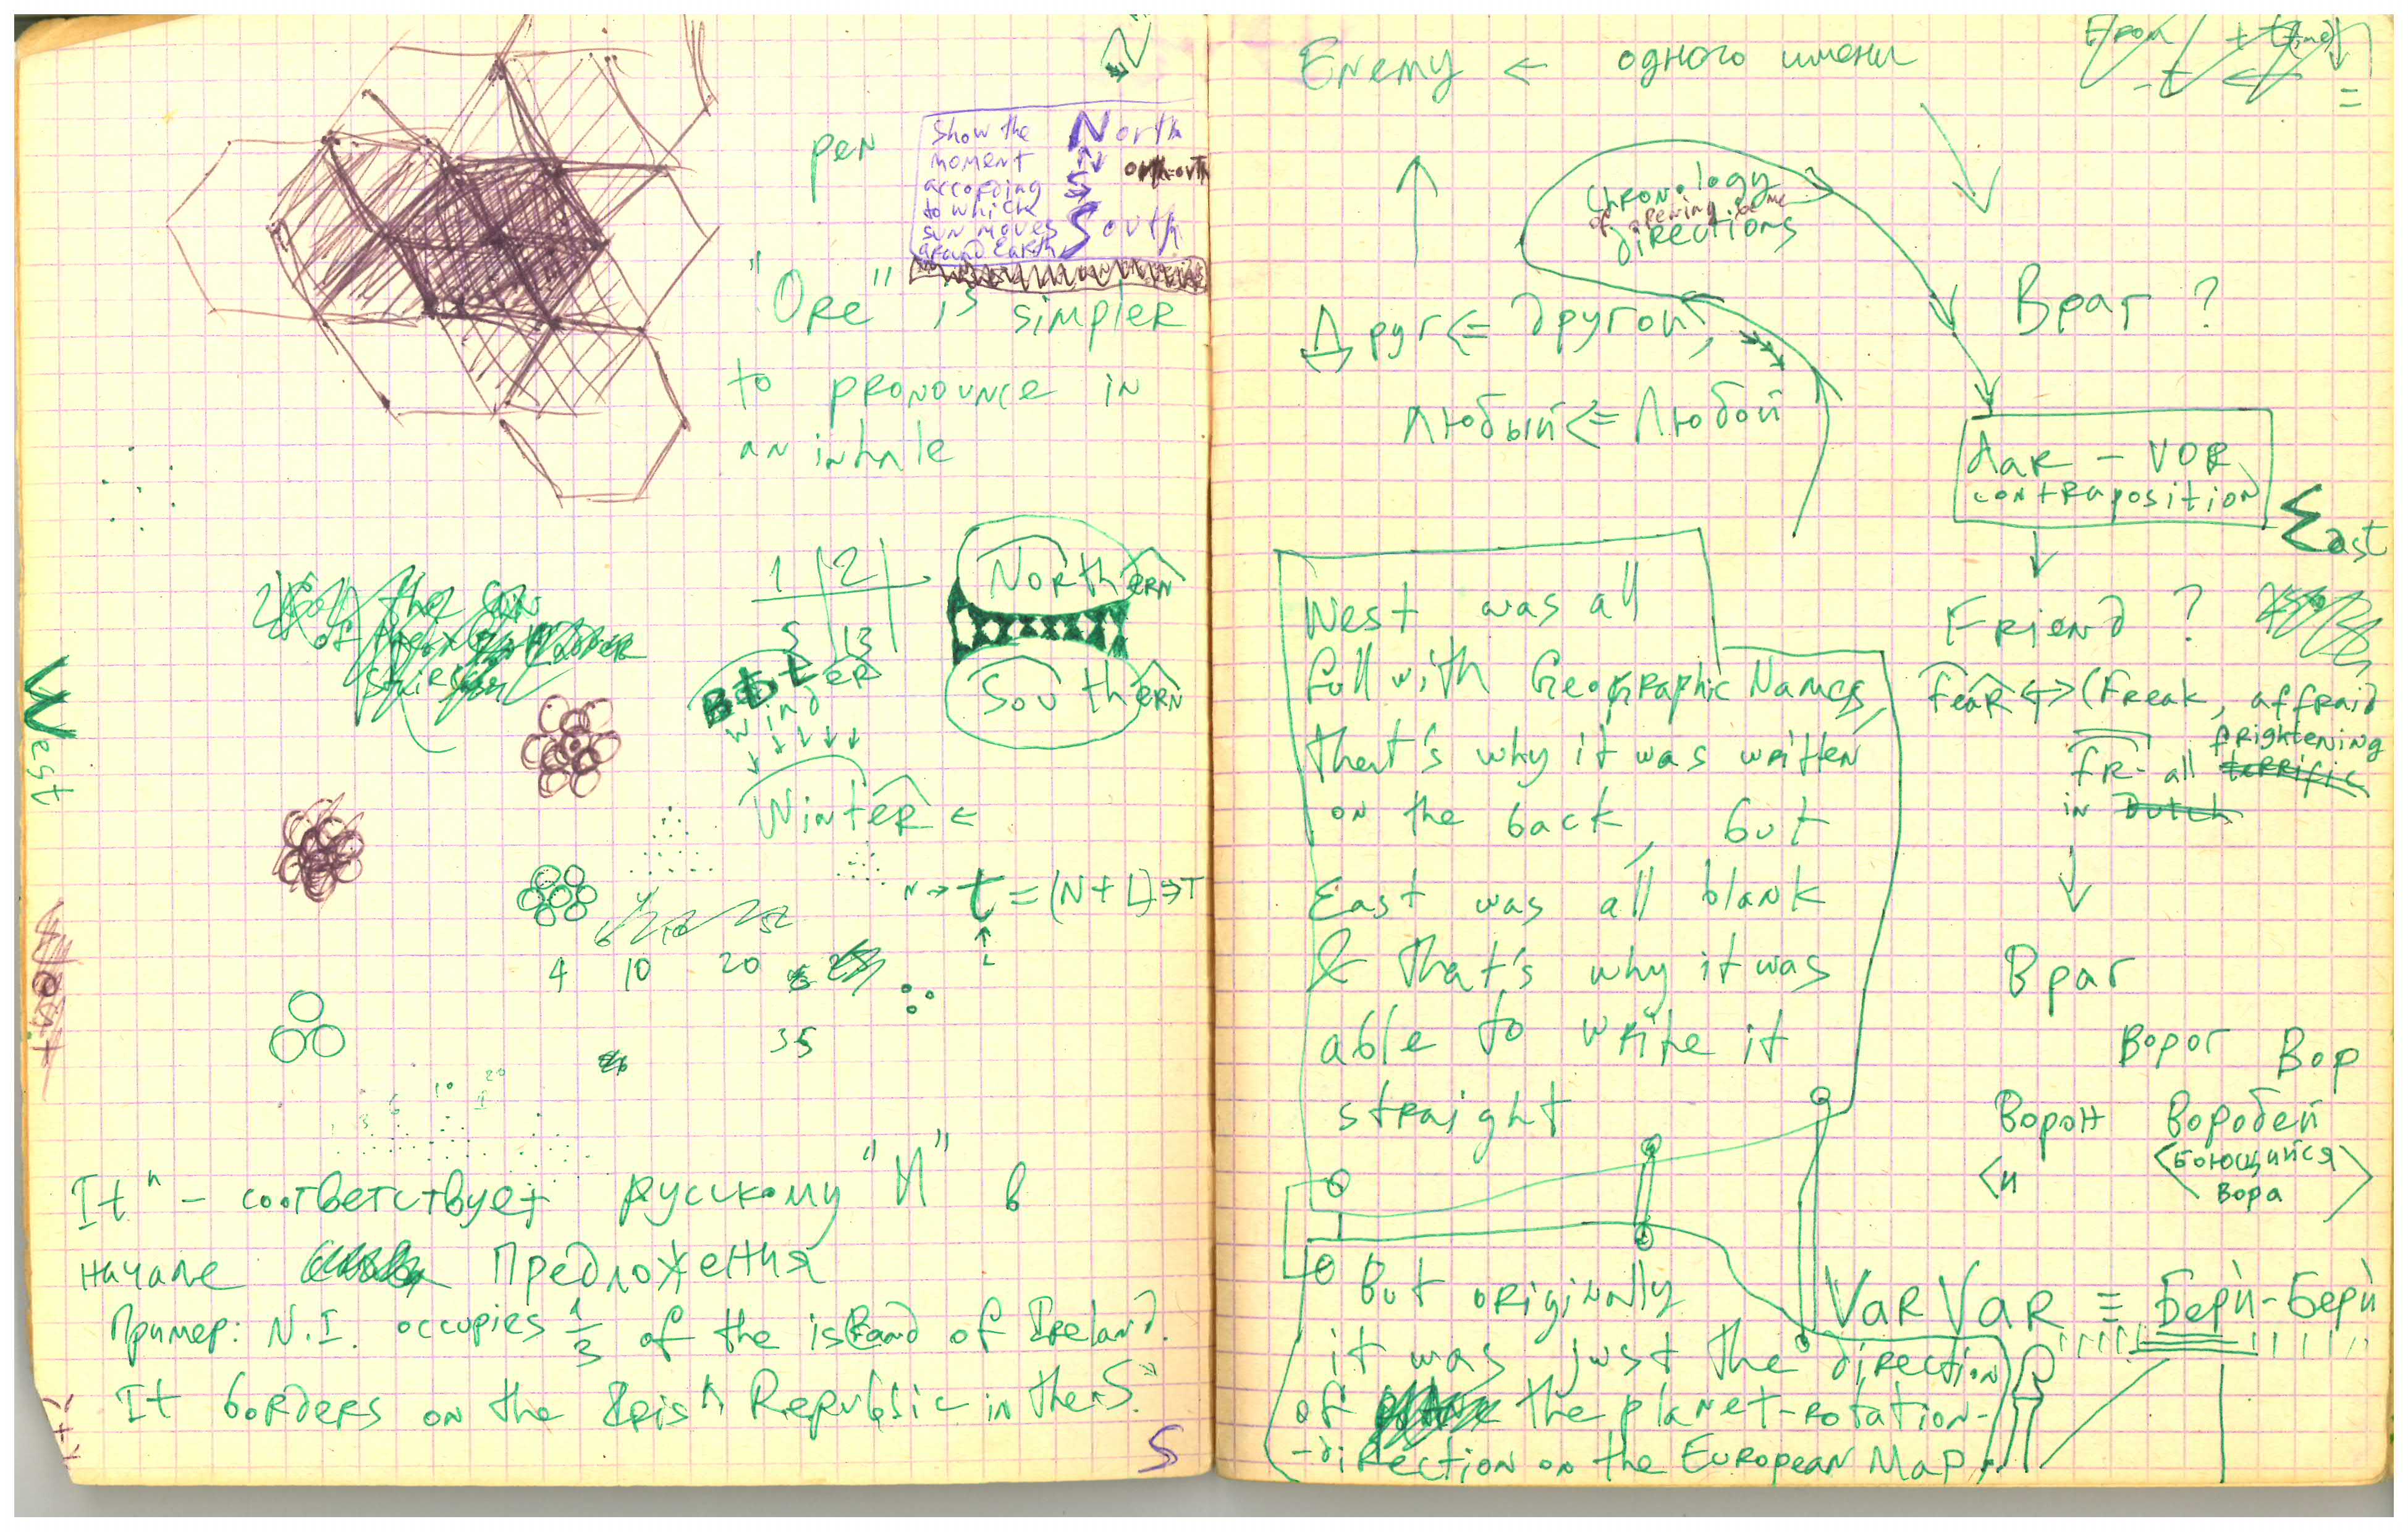 pen
Show the
moment
according
to which
sun moves
around Earth
North
South
"Ore" is simpler
to pronounce in
an inhale
1 2
5 13
Northern
Southern
wind
Winter ←
West
N → t = (N + L) ⇒ T
↑
L
4 10 20
35
It" - соответствует русскому "И" в
начале предложения
Пример: N.I. occupies 1/3 of the island of Ireland.
It borders on the Irish Republic in the S."
S
Enemy ← одного имени
Chronology
of opening some
directions
Враг ?
Друг <= другой,
Любый <= Любой
Dar - VOR
contraposition
East
Friend ?
Fear <-> (Freak, affraid
frightening
fr- all terrific
in Dutch
Враг
Ворог Вор
Ворон Воробей
<и <боющийся
вора>
West was all
full with Geographic Names
that's why it was written
on the back, but
East was all blank
& that's why it was
able to write it
straight
But originally
it was just the direction
of the planet-rotation-
-direction on the European Map
Var Var ≡ Бери-Бери